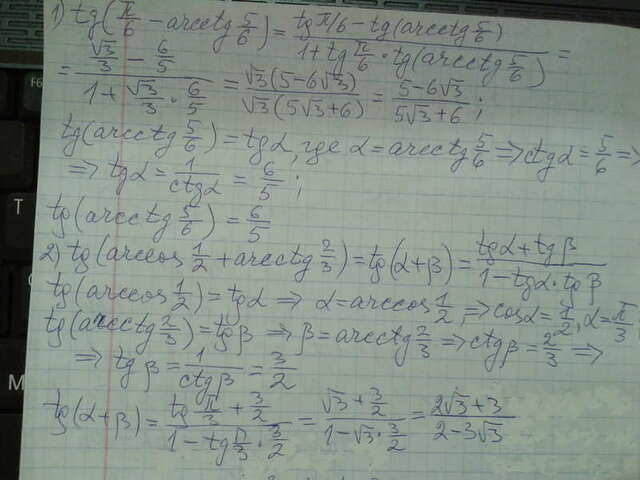 1) tg(π/6 - arcctg 5/6) = (tg π/6 - tg(arcctg 5/6)) / (1 + tg π/6 · tg(arcctg 5/6)) =
= (√3/3 - 6/5) / (1 + √3/3 · 6/5) = √3(5-6√3) / √3(5√3+6) = (5-6√3) / (5√3+6);
tg(arcctg 5/6) = tgα, где α = arcctg 5/6 ⇒ ctgα = 5/6 ⇒
⇒ tgα = 1/ctgα = 6/5;
tg(arcctg 5/6) = 6/5
2) tg(arccos 1/2 + arcctg 2/3) = tg(α+β) = (tgα + tgβ) / (1 - tgα · tgβ)
tg(arccos 1/2) = tgα ⇒ α = arccos 1/2, ⇒ cosα = 1/2, α = π/3
tg(arcctg 2/3) = tgβ ⇒ β = arcctg 2/3 ⇒ ctgβ = 2/3 ⇒
⇒ tgβ = 1/ctgβ = 3/2
tg(α+β) = (tg π/3 + 3/2) / (1 - tg π/3 · 3/2) = (√3 + 3/2) / (1 - √3 · 3/2) = (2√3+3) / (2-3√3)
F6
T
M